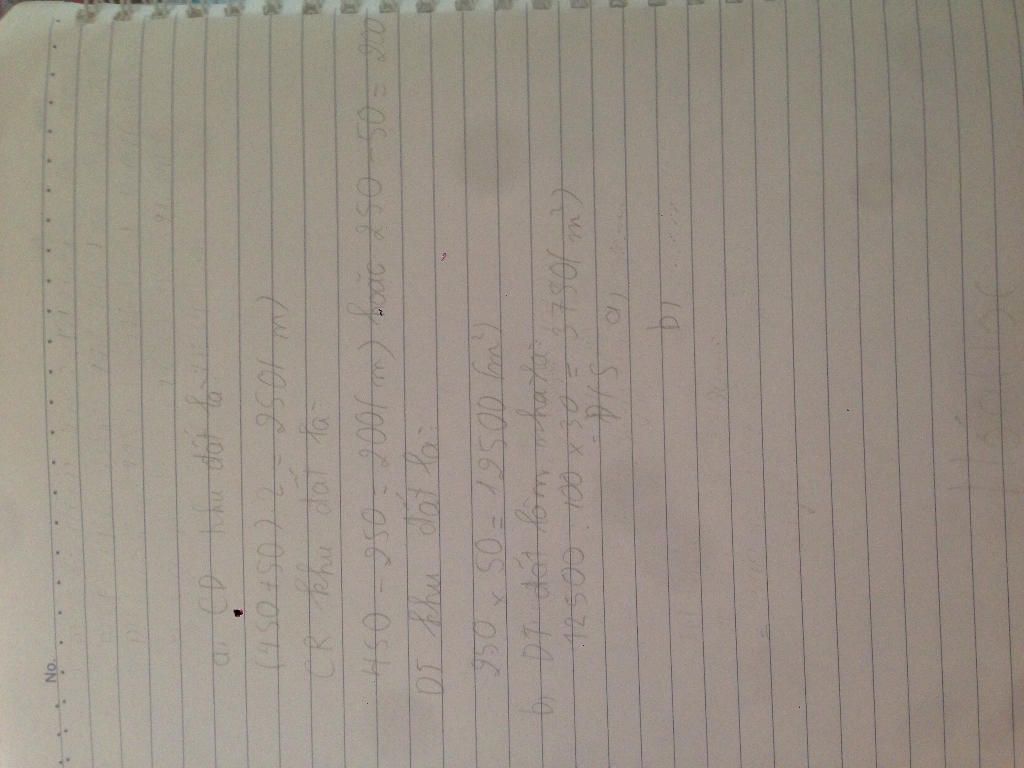 No.
a. CD khu đất là:
(450 + 50) : 2 = 250 (m)
CR khu đất là:
450 - 250 = 200 (m) hoặc 250 - 50 = 20
DT khu đất là:
250 x 50 = 12500 (m²)
b, DT đất làm nhà là:
12500 : 100 x 30 = 3750 (m²)
Đ/S a,
b,